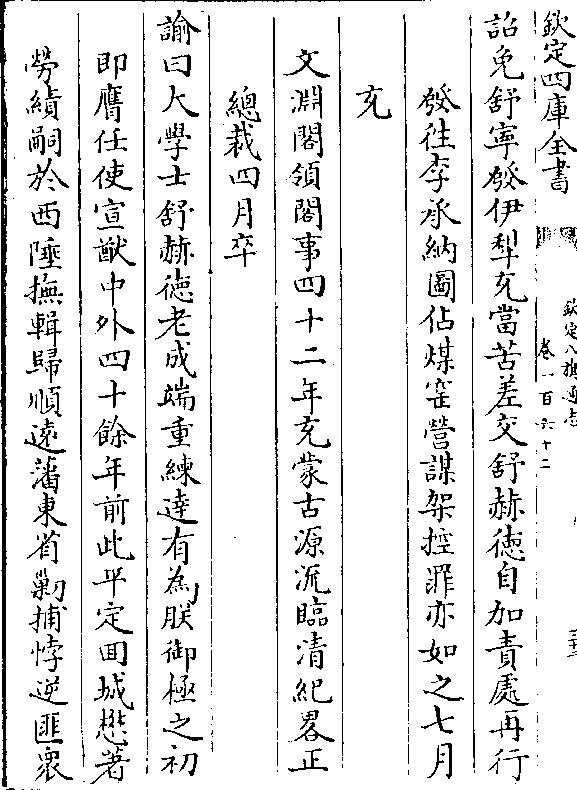 欽定四庫全書
欽定八旗通志
卷一百六十二
三十二
詔免舒寧發伊犁充當苦差交舒赫徳自加責處再行
發徃李承納圖佔煤窑營謀架控罪亦如之七月
充
文淵閣領閣事四十二年充蒙古源流臨清紀畧正
總裁四月卒
諭曰大學士舒赫徳老成端重練達有為朕御極之初
即膺任使宣猷中外四十餘年前此平定囬城懋著
勞績嗣於西陲撫輯歸順逺藩東省勦捕悖逆匪衆